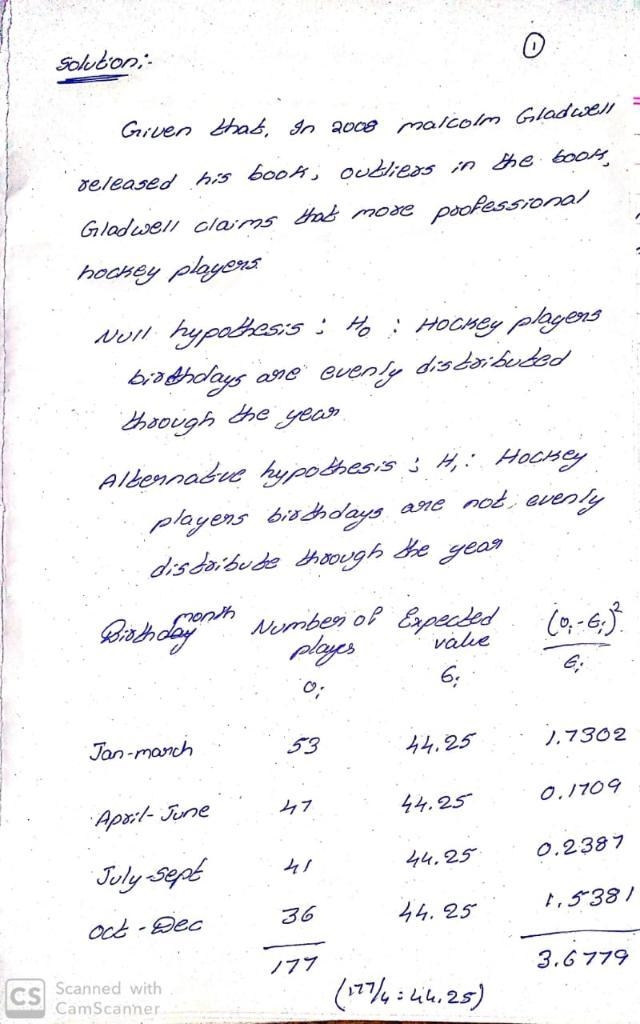 ①
Solution:-
Given that, In 2008 malcolm Gladwell
released his book, outliers in the book,
Gladwell claims that more professional
hockey players.
Null hypothesis : H₀ : Hockey players
birthdays are evenly distributed
through the year
Alternative hypothesis : H₁ : Hockey
players birthdays are not evenly
distribute through the year
Birthday month Number of players Oᵢ Expected value Eᵢ (Oᵢ-Eᵢ)²/Eᵢ
Jan-march 53 44.25 1.7302
April-June 47 44.25 0.1709
July-Sept 41 44.25 0.2387
Oct-Dec 36 44.25 1.5381
177 3.6779
(177/4 = 44.25)
CS Scanned with
CamScanner